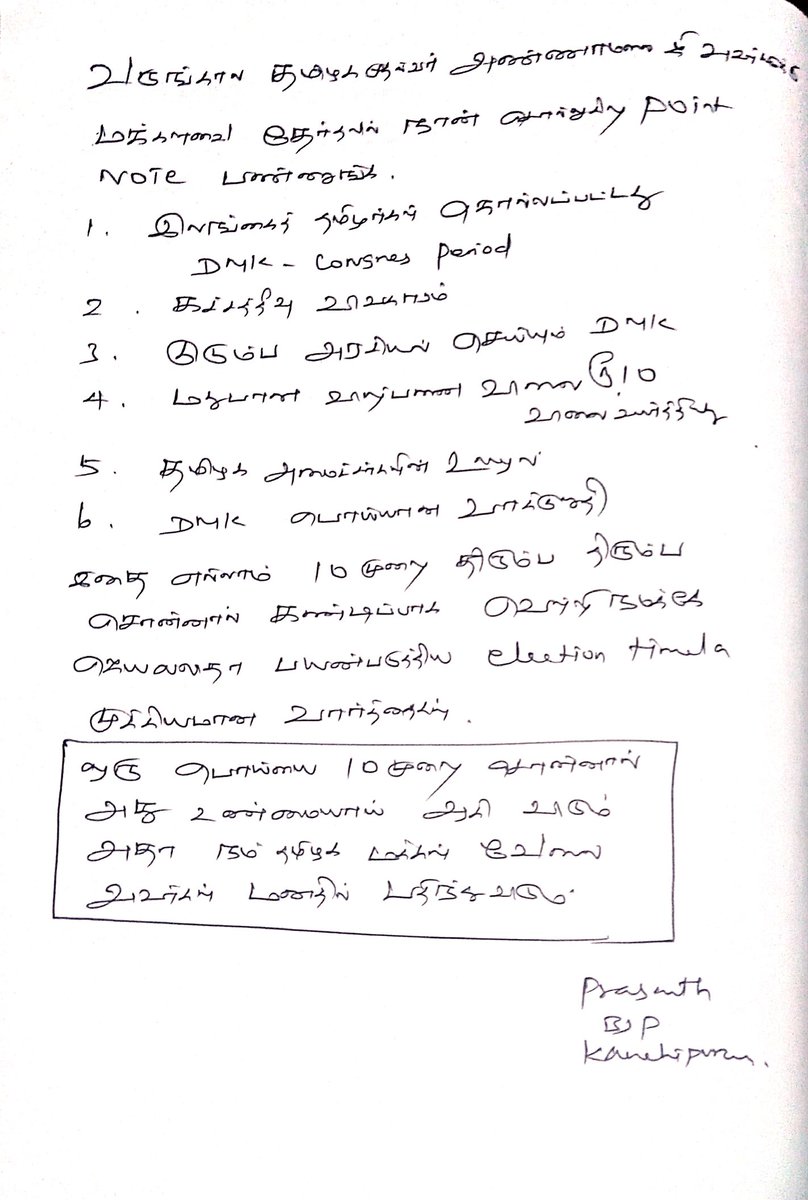 வருங்கால தமிழக முதல்வர் அண்ணாமலை ஜி அவர்களுக்கு
மக்களவை தேர்தலில் நான் சொல்லுகிற point
NOTE பண்ணுங்க.
1. இலங்கைத் தமிழர்கள் கொல்லப்பட்டது
DMK - Congres Period
2. கச்சத்தீவு விவகாரம்
3. குடும்ப அரசியல் செய்யும் DMK
4. மதுபான விற்பனை விலை ரூ.10
விலை உயர்த்தியது
5. தமிழக அமைச்சர்களின் ஊழல்
6. DMK பொய்யான வாக்குறுதி
இதை எல்லாம் 10 முறை திரும்ப திரும்ப
சொன்னால் கண்டிப்பாக வெற்றி நமக்கே
ஜெயலலிதா பயன்படுத்திய election timela
முக்கியமான வார்த்தைகள்.
ஒரு பொய்யை 10 முறை சொன்னால்
அது உண்மையாய் ஆகி விடும்
அதா நம் தமிழக மக்கள்
அவர்கள் மனதில் பதிந்துவிடும்.
Prasanth
BJP
Kanchipuram.